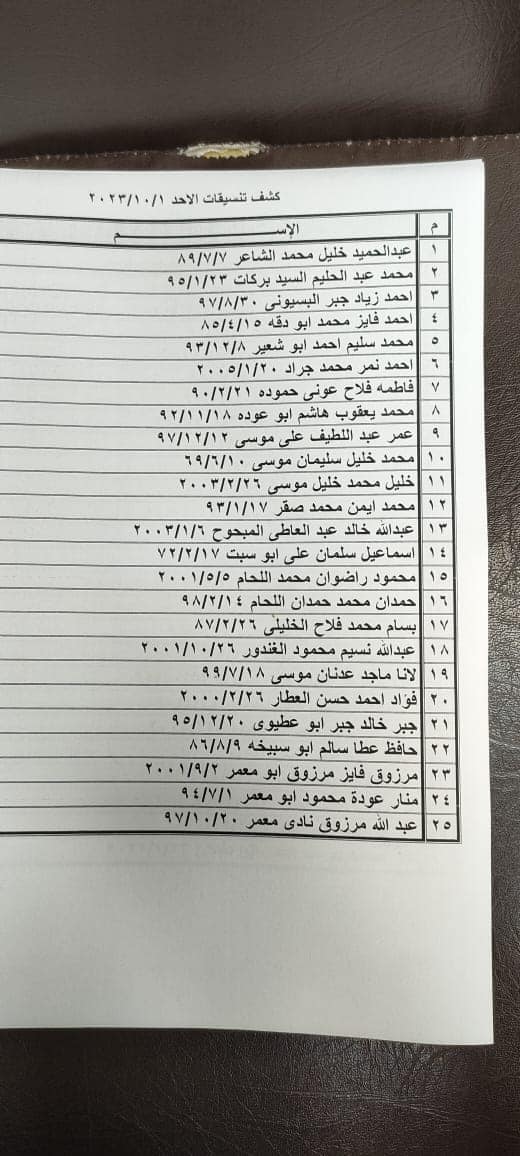 كشف تنسيقات الاحد ٢٠٢٣/١٠/١
م الإســـــــــــــم
١ عبدالحميد خليل محمد الشاعر ٨٩/٧/٧
٢ محمد عبد الحليم السيد بركات ٩٥/١/٢٣
٣ احمد زياد جبر البسيونى ٩٧/٨/٣٠
٤ احمد فايز محمد ابو دقه ٨٥/٤/١٥
٥ محمد سليم احمد ابو شعير ٩٣/١٢/٨
٦ احمد نمر محمد جراد ٢٠٠٥/١/٢٠
٧ فاطمه فلاح عونى حموده ٩٠/٢/٢١
٨ محمد يعقوب هاشم ابو عوده ٩٢/١١/١٨
٩ عمر عبد اللطيف على موسى ٩٧/١٢/١٢
١٠ محمد خليل سليمان موسى ٦٩/٦/١٠
١١ خليل محمد خليل موسى ٢٠٠٣/٢/٢٦
١٢ محمد ايمن محمد صقر ٩٣/١/١٧
١٣ عبدالله خالد عبد العاطى المبحوح ٢٠٠٣/١/٦
١٤ اسماعيل سلمان على ابو سبت ٧٢/٢/١٧
١٥ محمود راضوان محمد اللحام ٢٠٠١/٥/٥
١٦ حمدان محمد حمدان اللحام ٩٨/٢/١٤
١٧ بسام محمد فلاح الخليلى ٨٧/٢/٢٦
١٨ عبدالله نسيم محمود الغندور ٢٠٠١/١٠/٢٦
١٩ لانا ماجد عدنان موسى ٩٩/٧/١٨
٢٠ فؤاد احمد حسن العطار ٢٠٠٠/٢/٢٦
٢١ جبر خالد جبر ابو عطيوى ٩٥/١٢/٢٠
٢٢ حافظ عطا سالم ابو سبيخه ٨٦/٨/٩
٢٣ مرزوق فايز مرزوق ابو معمر ٢٠٠١/٩/٢
٢٤ منار عودة محمود ابو معمر ٩٤/٧/١
٢٥ عبد الله مرزوق نادى معمر ٩٧/١٠/٢٠